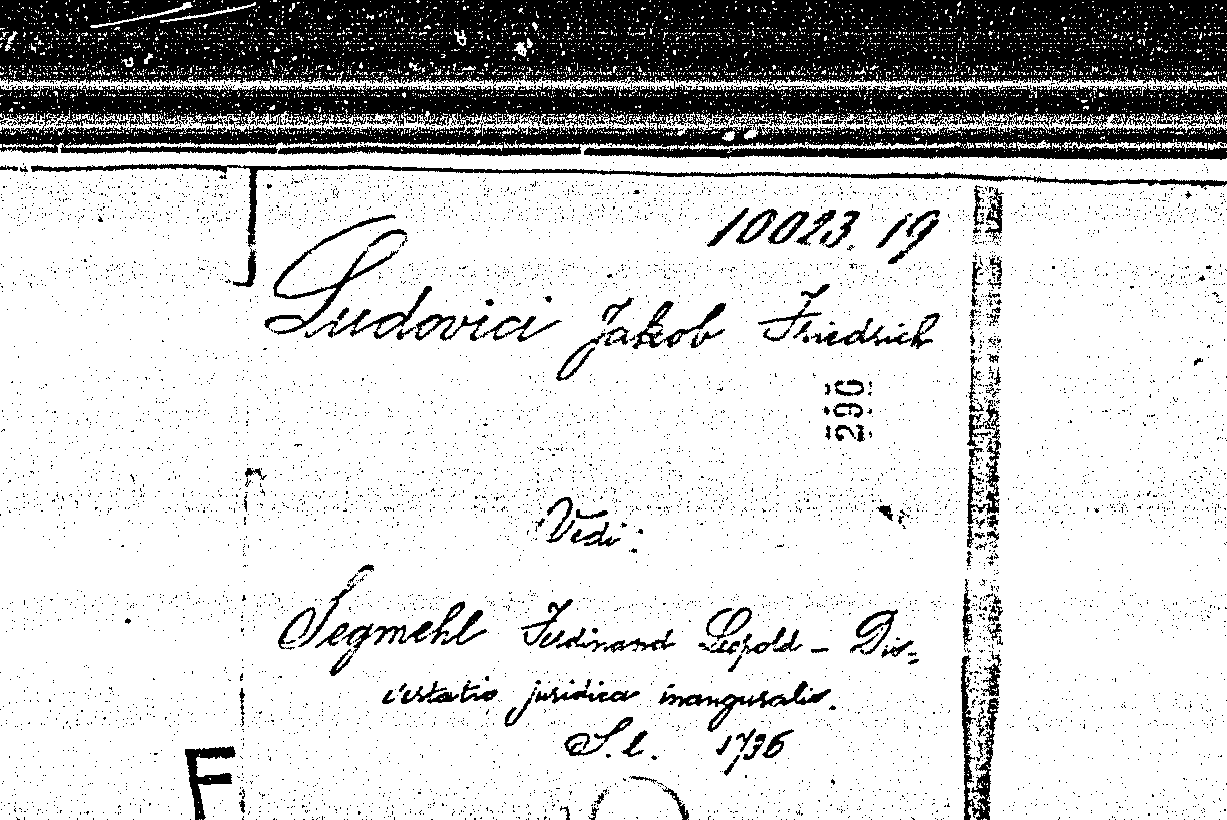 10023. 19
Ludovici Jakob Friedrich
296
Vedi:
Segmehl Ferdinand Leopold - Dis=
sertatio juridica inauguralis.
S. l. 1736
F